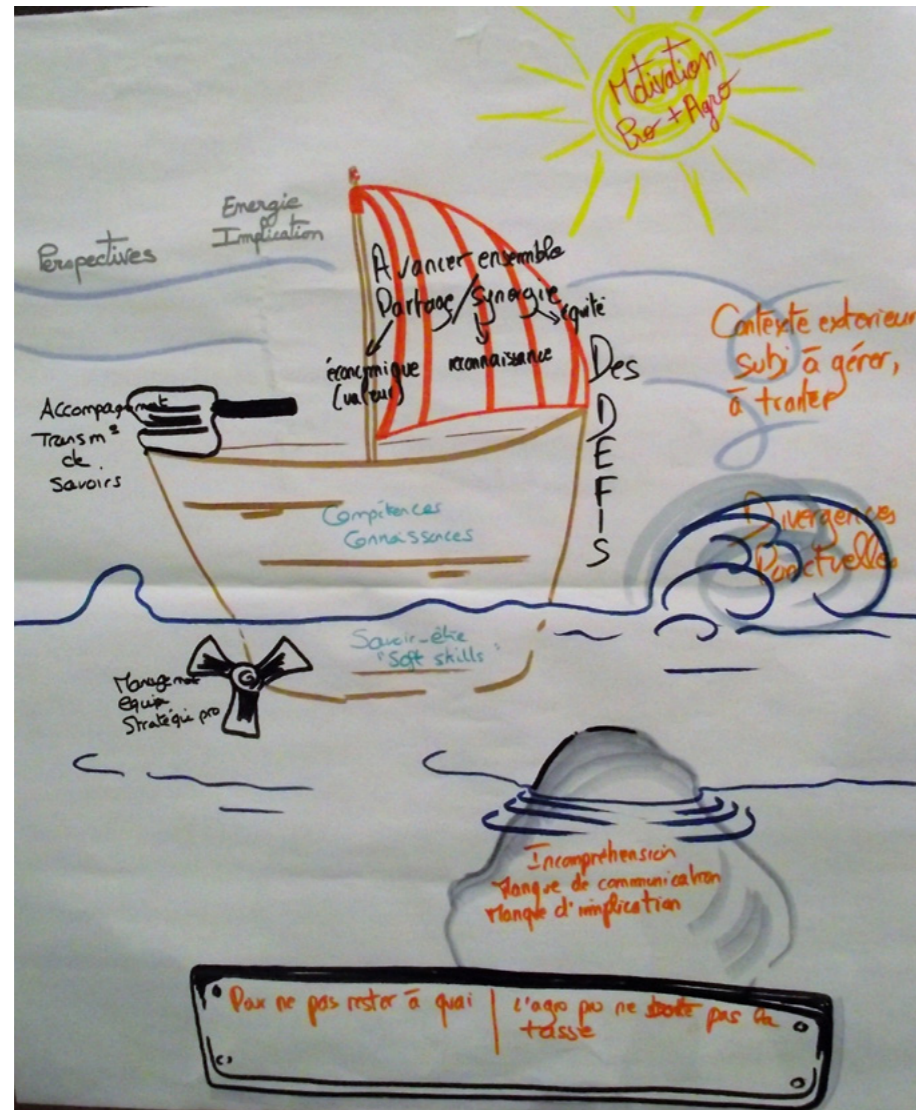 Motivation
Pro + Agro
Energie
Implication
Perspectives
Avancer ensemble
Partage / Synergie
équité
économique
(valeur)
reconnaissance
Des
DEFIS
Contexte exterieur
subi à gérer,
à traiter
Accompagnemt
Transm°
de
Savoirs
Compétences
Connaissances
Divergences
Ponctuelles
Savoir-être
"Soft skills"
Managemt
équipe
Stratégie pro
Incompréhension
Manque de communication
Manque d'implication
Pour ne pas rester à quai
L'agro pro ne boite pas la
tasse